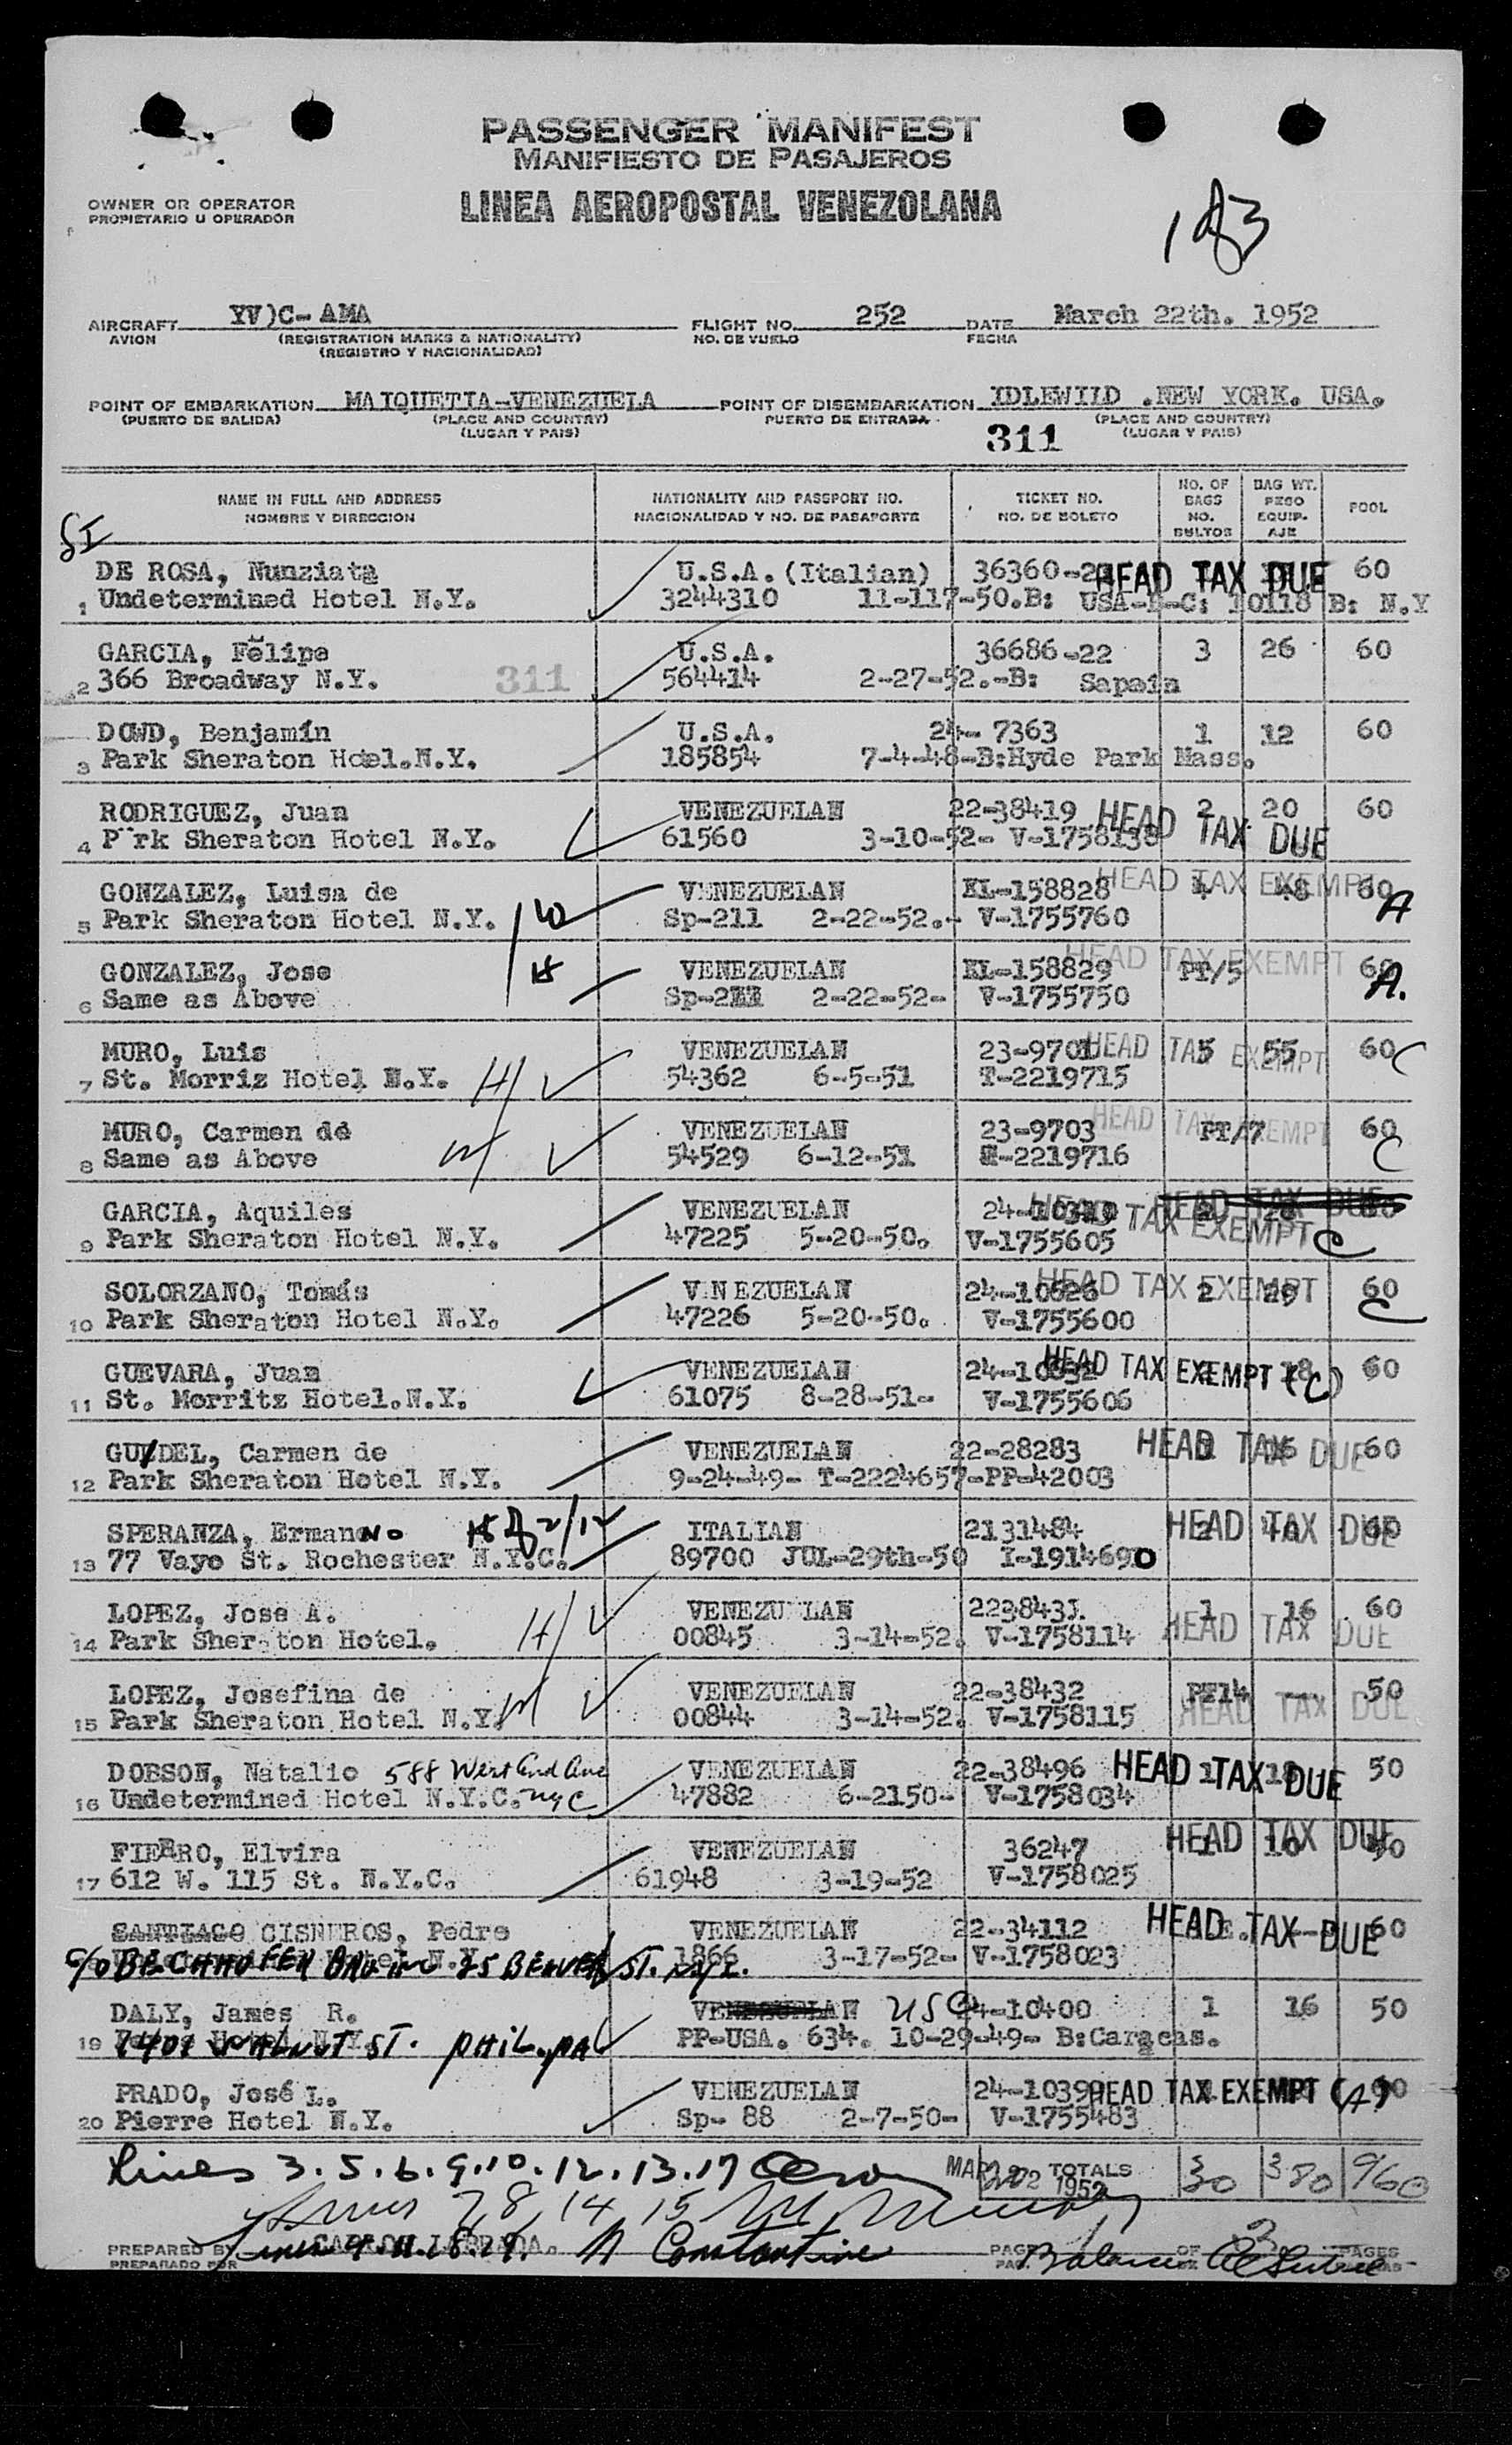 PASSENGER MANIFEST
MANIFIESTO DE PASAJEROS
OWNER OR OPERATOR
PROPIETARIO U OPERADOR
LINEA AEROPOSTAL VENEZOLANA
AIRCRAFT YV)C-AMA FLIGHT NO. 252 DATE March 22th. 1952
AVION (REGISTRATION MARKS & NATIONALITY) NO. DE VUELO FECHA
(REGISTRO Y NACIONALIDAD)
POINT OF EMBARKATION MAIQUETIA-VENEZUELA POINT OF DISEMBARKATION IDLEWILD .NEW YORK. USA.
(PUERTO DE SALIDA) (PLACE AND COUNTRY) PUERTO DE ENTRADA (PLACE AND COUNTRY)
(LUGAR Y PAIS) 311 (LUGAR Y PAIS)
NAME IN FULL AND ADDRESS NATIONALITY AND PASSPORT NO. TICKET NO. NO. OF BAGS BAG WT. POOL
NOMBRE Y DIRECCION NACIONALIDAD Y NO. DE PASAPORTE NO. DE BOLETO NO. BULTOS PESO EQUIP-AJE
SI
DE ROSA, Nunziata U.S.A. (Italian) HEAD TAX DUE 60
1 Undetermined Hotel N.Y. 3244310 11-117-50.B: B: N.Y
GARCIA, Felipe U.S.A. 36686-22 3 26 60
2 366 Broadway N.Y. 311 564414 2-27-52.-B: Sapain
DOWD, Benjamín U.S.A. 24-7363 1 12 60
3 Park Sheraton Hotel.N.Y. 185854 7-4-48-B:Hyde Park Mass.
RODRIGUEZ, Juan VENEZUELAN 22-38419 HEAD TAX DUE 2 20 60
4 P¨rk Sheraton Hotel N.Y. 61560 3-10-52- V-1758138
GONZALEZ, Luisa de VENEZUELAN KL-158828 HEAD TAX EXEMPT 48 60 A
5 Park Sheraton Hotel N.Y. W Sp-211 2-22-52.- V-1755760
GONZALEZ, Jose H VENEZUELAN KL-158829 HEAD TAX EXEMPT PT/5 60 A.
6 Same as Above 2-22-52- V-1755750
MURO, Luis VENEZUELAN HEAD TAX EXEMPT 5 55 60 C
7 St. Morriz Hotel N.Y. H 54362 6-5-51 T-2219715
MURO, Carmen de VENEZUELAN 23-9703 HEAD TAX EXEMPT PT/7 60 C
8 Same as Above 54529 6-12-51 2219716
GARCIA, Aquiles VENEZUELAN HEAD TAX EXEMPT HEAD TAX DUE C
9 Park Sheraton Hotel N.Y. 47225 5-20-50. V-1755605
SOLORZANO, Tomás V NEZUELAN 24-10526 HEAD TAX EXEMPT 2 60 C
10 Park Sheraton Hotel N.Y. 47226 5-20-50. V-1755600
GUEVARA, Juan VENEZUELAN HEAD TAX EXEMPT (C) 60
11 St. Morritz Hotel.N.Y. 61075 8-28-51- V-1755606
Carmen de VENEZUELAN 22-28283 HEAD TAX DUE 60
12 Park Sheraton Hotel N.Y. 9-24-49- T-2224657-PP-42003
SPERANZA, Ermanno ITALIAN 2131484 HEAD TAX DUE 60
13 77 Vayo St. Rochester N.Y.C. 89700 JUL-29th-50
LOPEZ, Jose A. VENEZU LAN 1 16 60
14 Park Sheraton Hotel. H 00845 3-14-52. V-1758114 HEAD TAX DUE
LOPEZ, Josefina de VENEZUELAN 22-38432 PT14 50
15 Park Sheraton Hotel N.Y. 00844 3-14-52. V-1758115 HEAD TAX DUE
DOBSON, Natalio 588 West End Ave VENEZUELAN 22-38496 HEAD TAX DUE 50
16 Undetermined Hotel N.Y.C. NYC 47882 6-2150- V-1758034
FIERRO, Elvira VENEZUELAN 36247 HEAD TAX DUE 50
17 612 W. 115 St. N.Y.C. 61948 3-19-52 V-1758025
SANTIAGO CISNEROS, Pedro VENEZUELAN 22-34112 HEAD TAX DUE 60
C/O BECHHOFER ST. 1866 3-17-52- V-1758023
DALY, James R. VENEZUELAN USC 24-10400 1 16 50
19 WALNUT ST. PHIL.PA PP-USA. 634. 10-29-49- B:Caracas.
PRADO, José L. VENEZUELAN HEAD TAX EXEMPT (A)
20 Pierre Hotel N.Y. Sp- 88 2-7-50- V-1755483
Lines 3.5.6.9.10.12.13.17 TOTALS 30 380 960
1952
Lines 7,8,14,15
PREPARED BY A Constantine PAGE 1 OF 3 PAGES
PREPARADO POR Balance